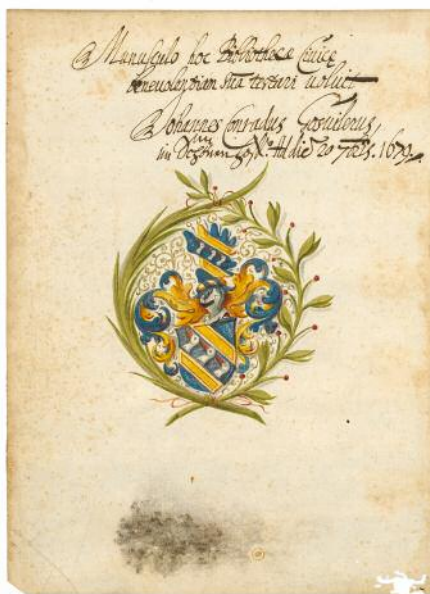 Munusculo hoc Bibliothecæ Civicæ
benevolentiam suã testari voluit
Johannes Conradus Gosvilerus,
im
im Schönenhof. Ad diẽ 20 7bris. 1679.